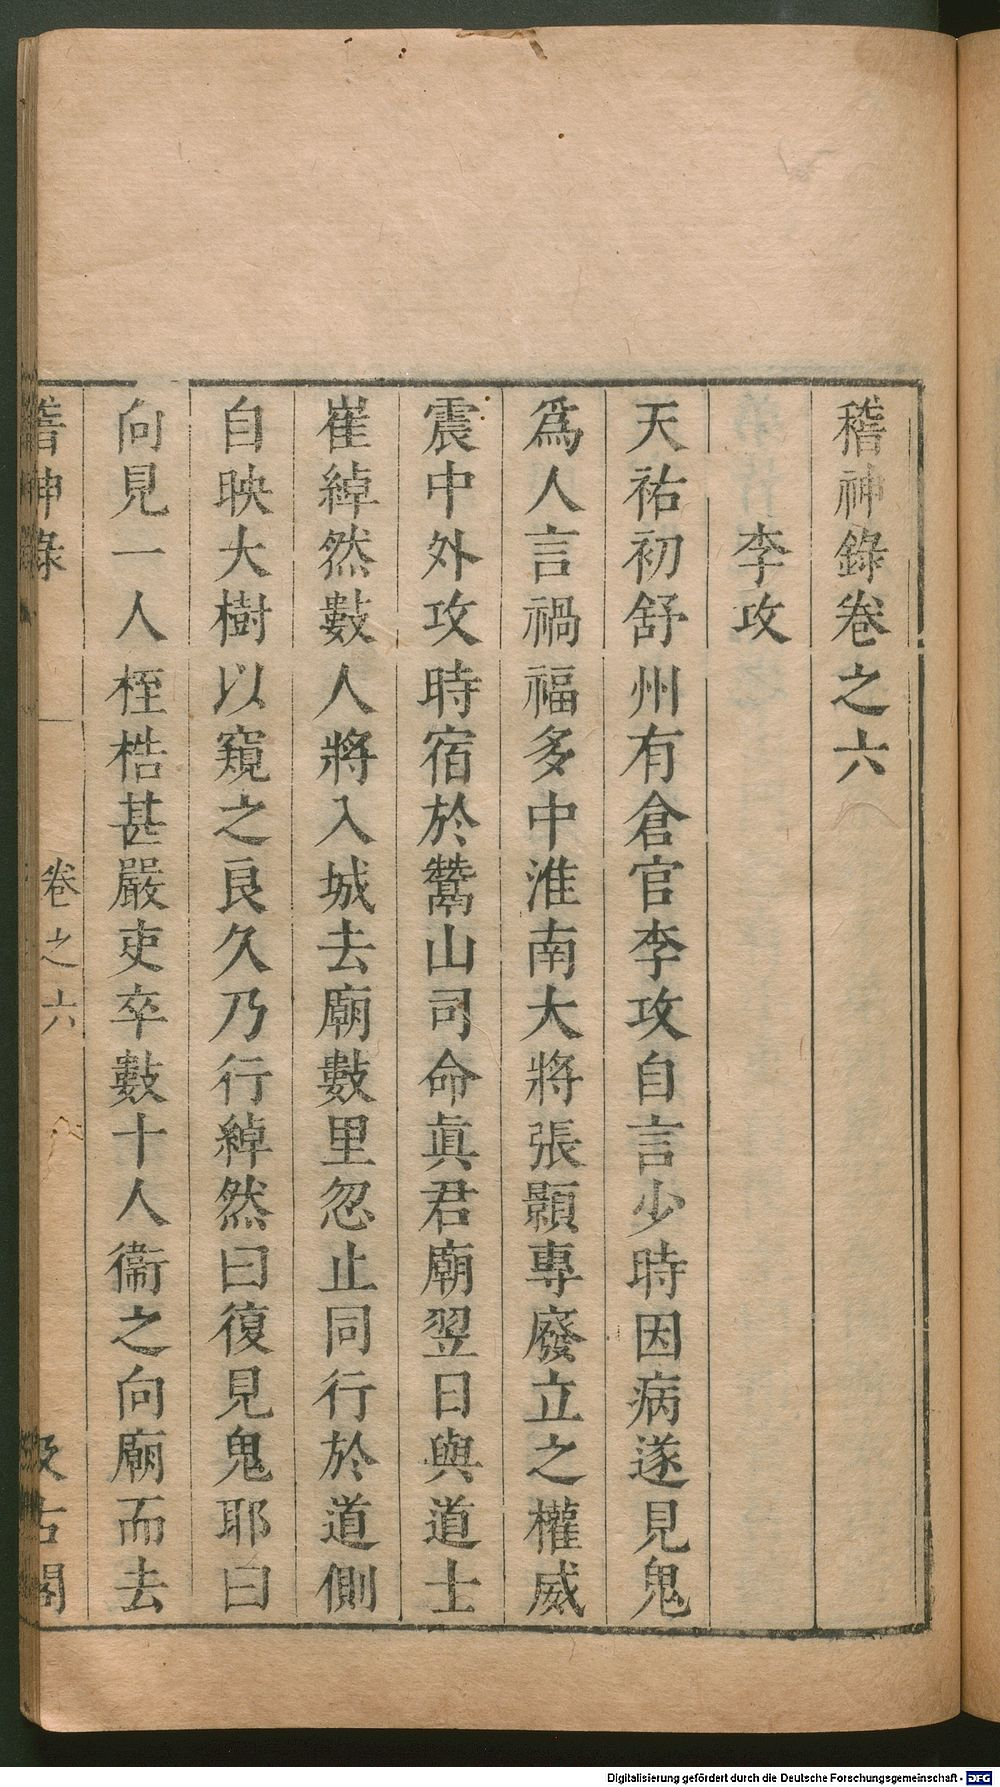 稽神錄卷之六
李攻
天祐初舒州有倉官李攻自言少時因病遂見鬼
爲人言禍福多中淮南大將張顥專廢立之權威
震中外攻時宿於鷟山司命眞君廟翌日與道士
崔綽然數人將入城去廟數里忽止同行於道側
自映大樹以窺之良久乃行綽然曰復見鬼耶曰
向見一人桎梏甚嚴吏卒數十人衞之向廟而去
稽神錄
卷之六
汲古閣
Digitalisierung gefördert durch die Deutsche Forschungsgemeinschaft - DFG